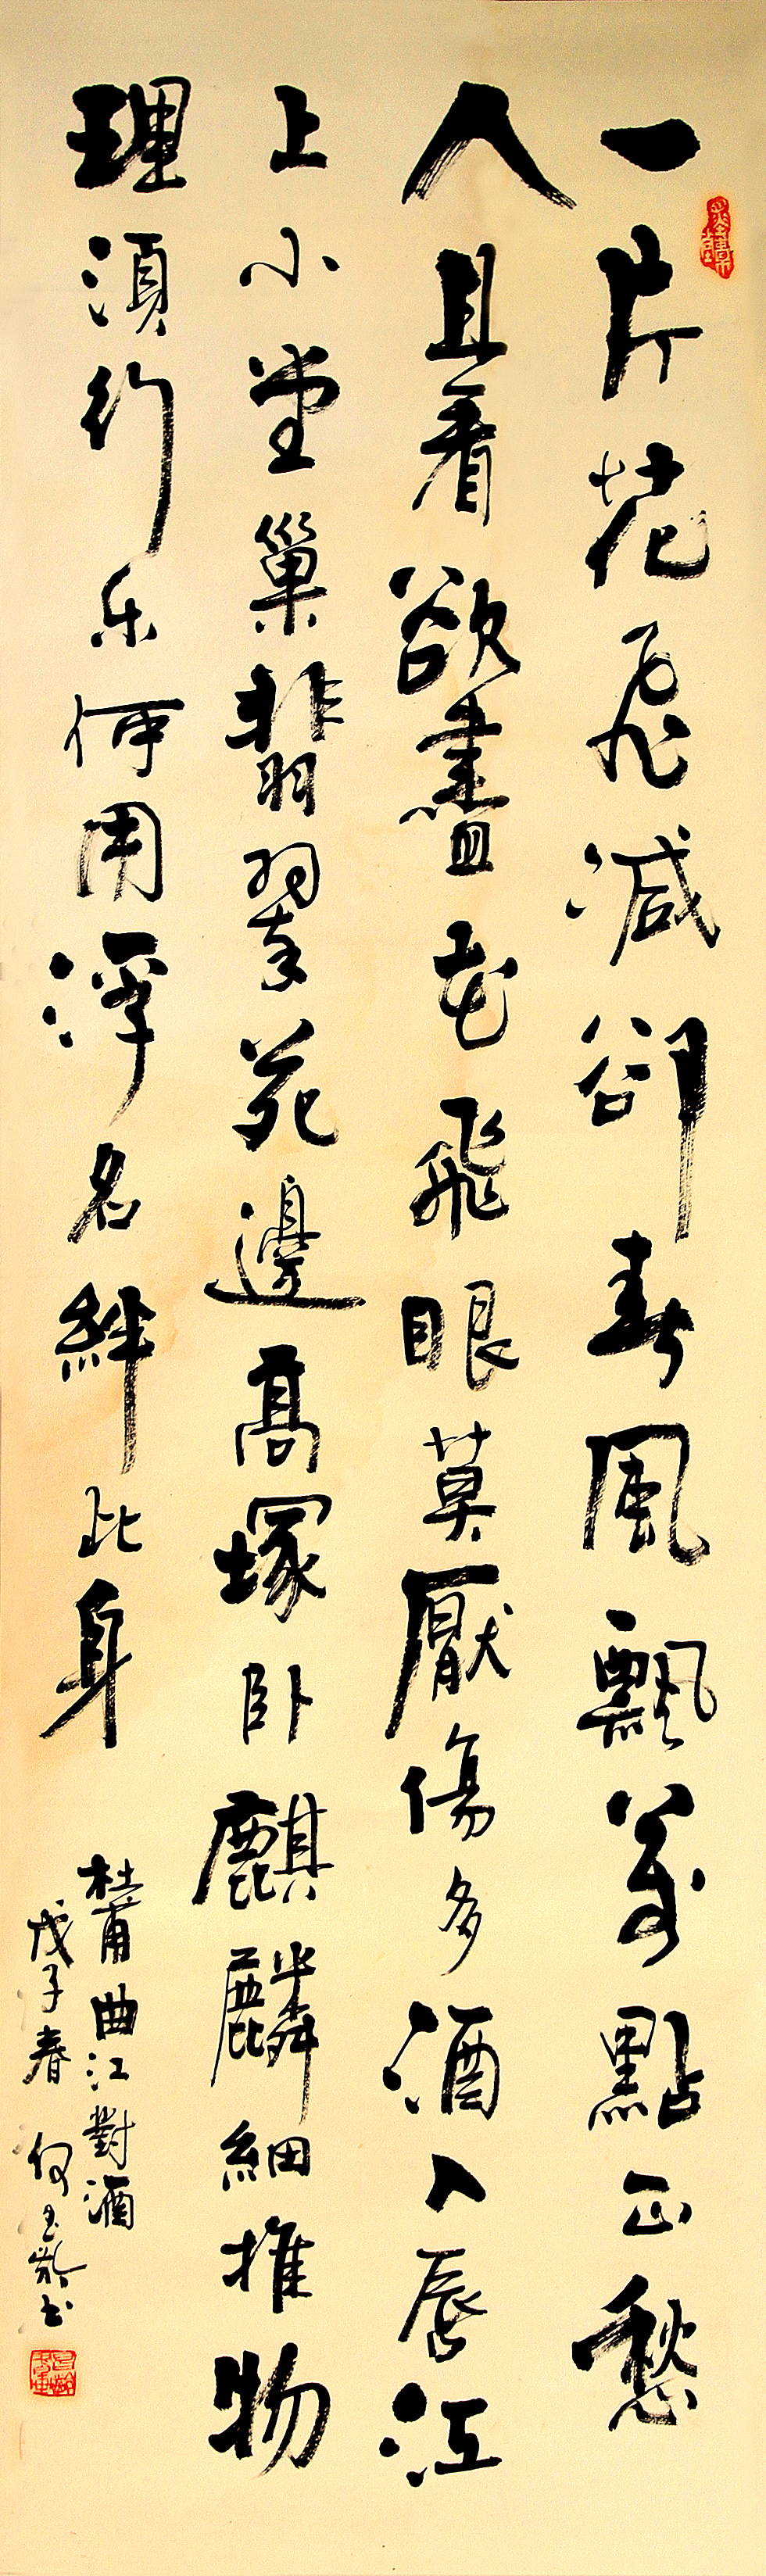 一片花飛減卻春風飄萬點正愁
人且看欲盡花飛眼莫厭傷多酒入唇江
上小堂巢翡翠苑邊髙塚卧麒麟細推物
理須行乐何用浮名絆此身
杜甫曲江對酒
戊子春 何齡书